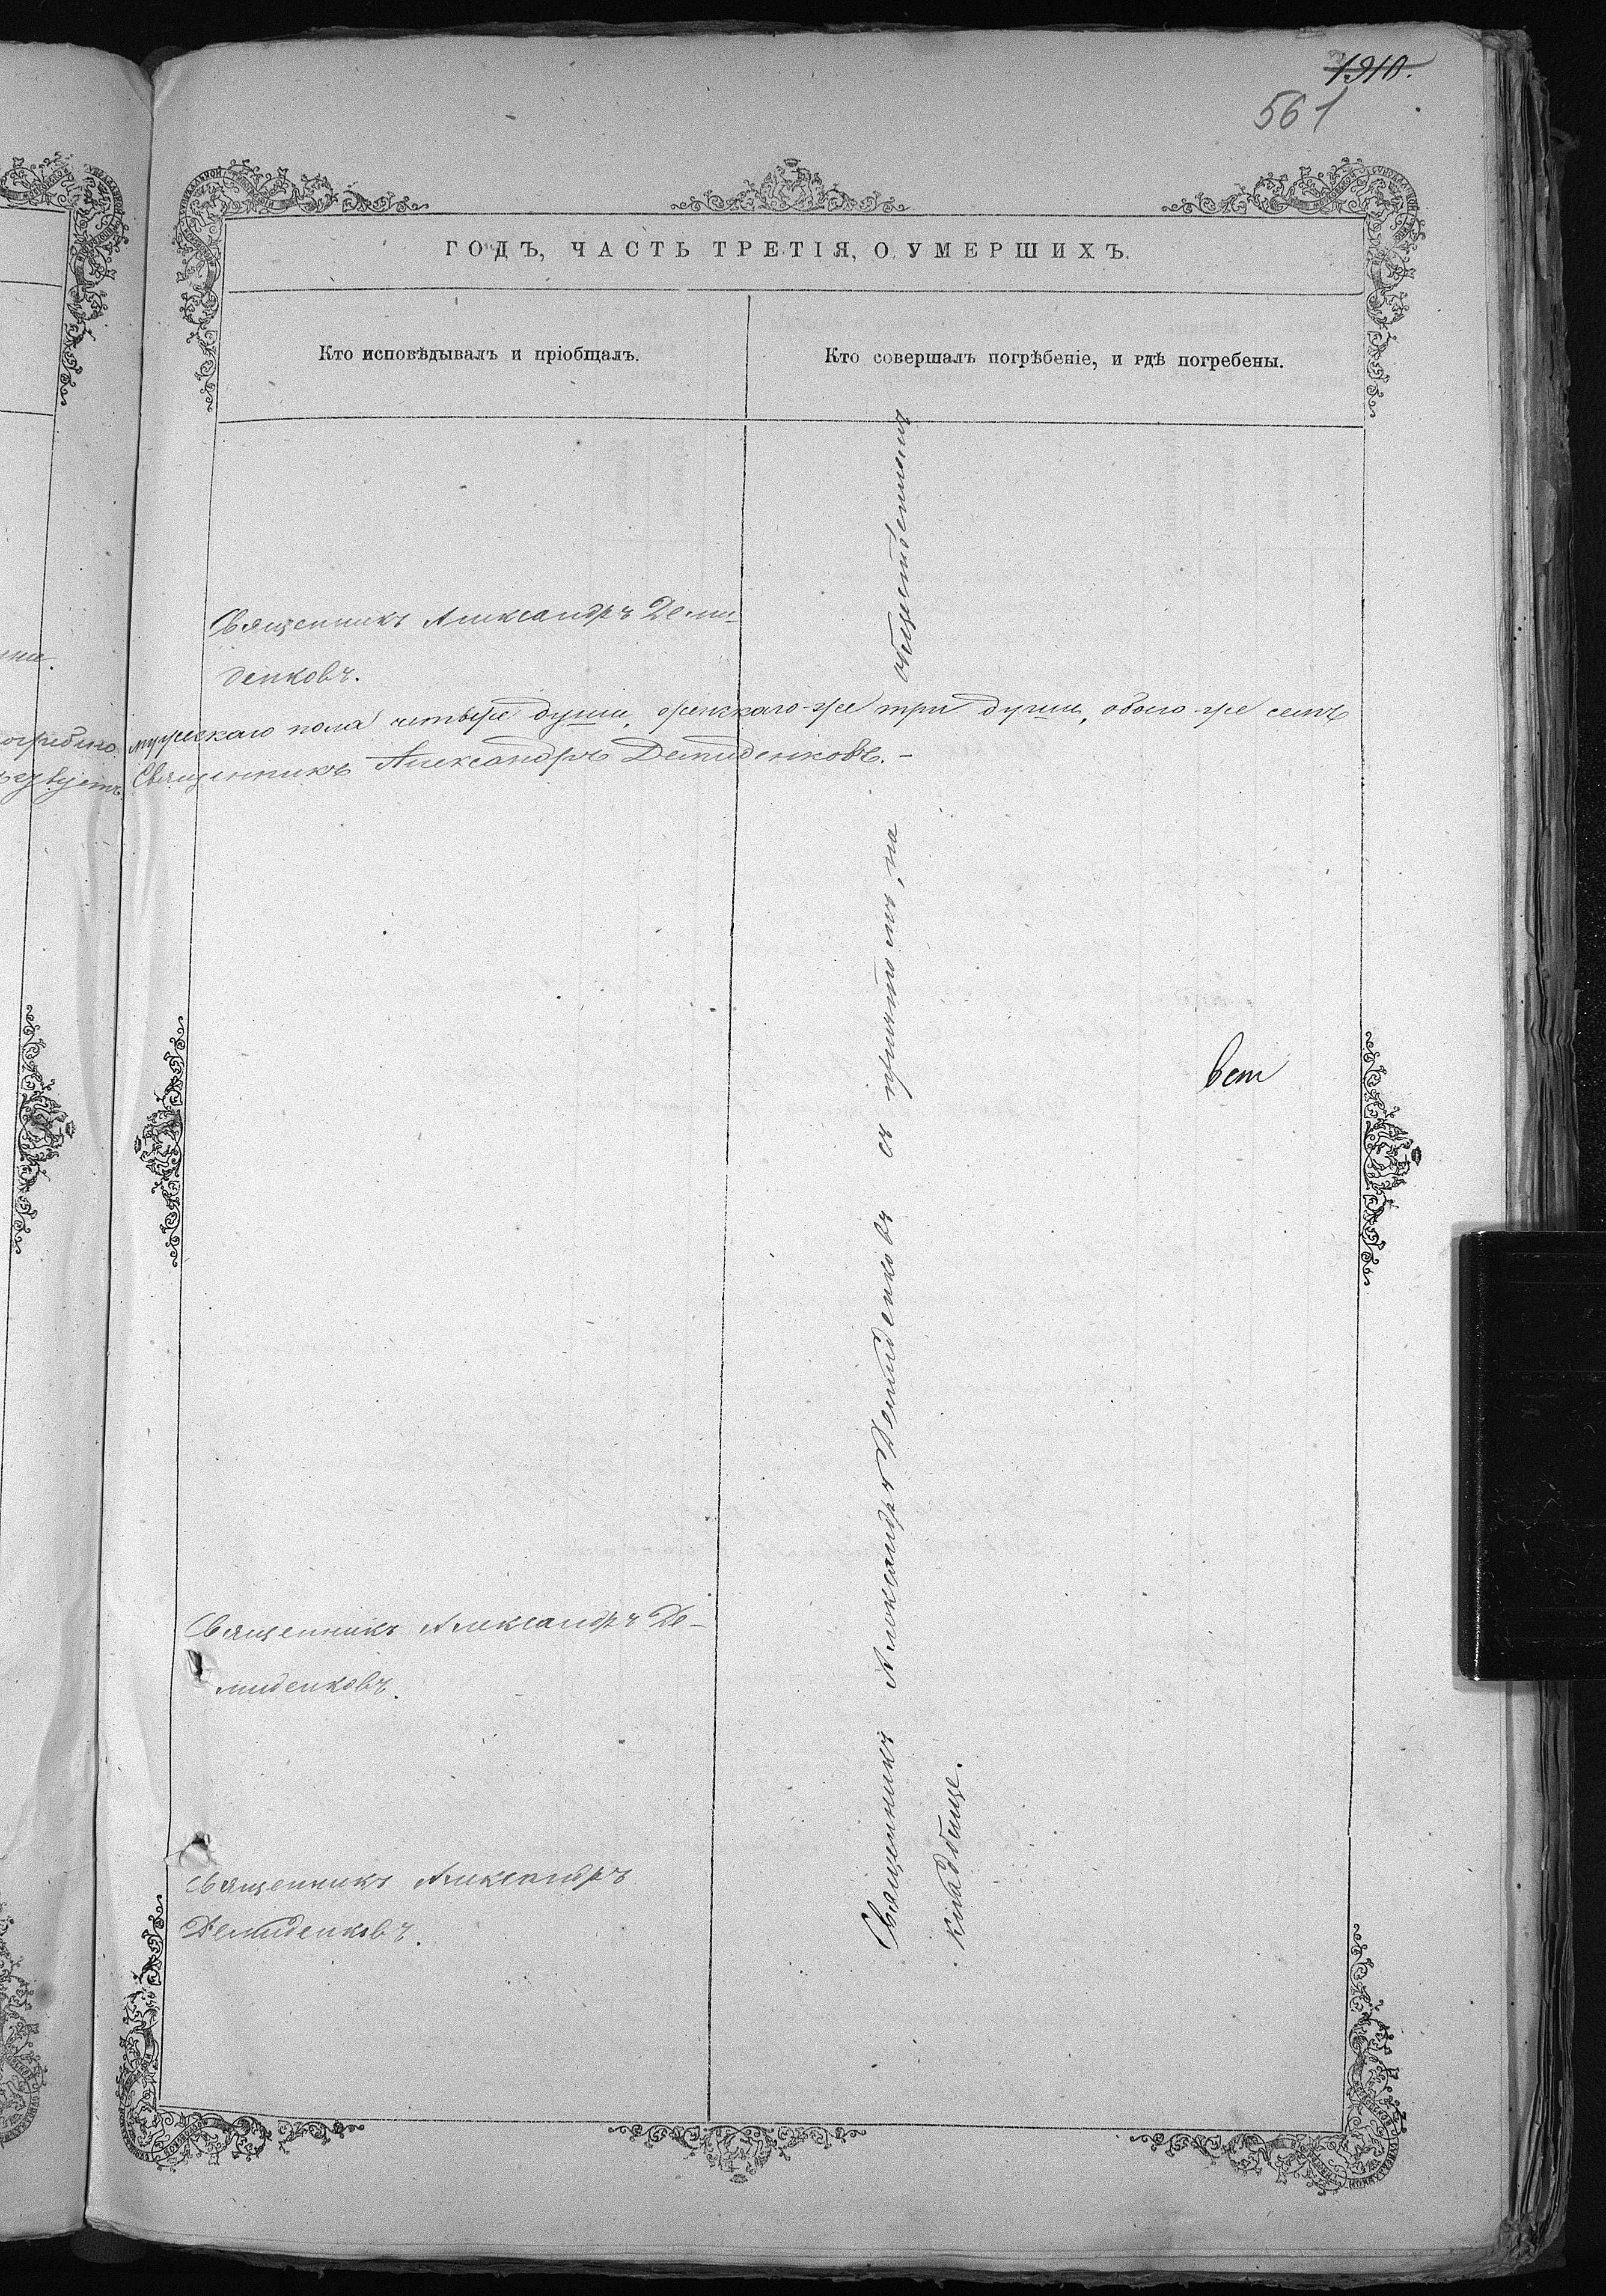 1910.
561
ГОДЪ, ЧАСТЬ ТРЕТІЯ, О УМЕРШИХЪ.
Кто исповѣдывалъ и пріобщалъ.
Кто совершалъ погрѣбеніе, и гдѣ погребены.
Священникъ Александръ Деми-
денковъ.
мужескаго пола четыре души, женскаго-же три души, обоего-же семь
Священникъ Александръ Демиденковъ.-
Священникъ Александръ Де-
миденковъ.
Священникъ Александръ
Демиденковъ.
Священникъ Александръ Демиденковъ съ причтомъ, на общественномъ
кладбище.